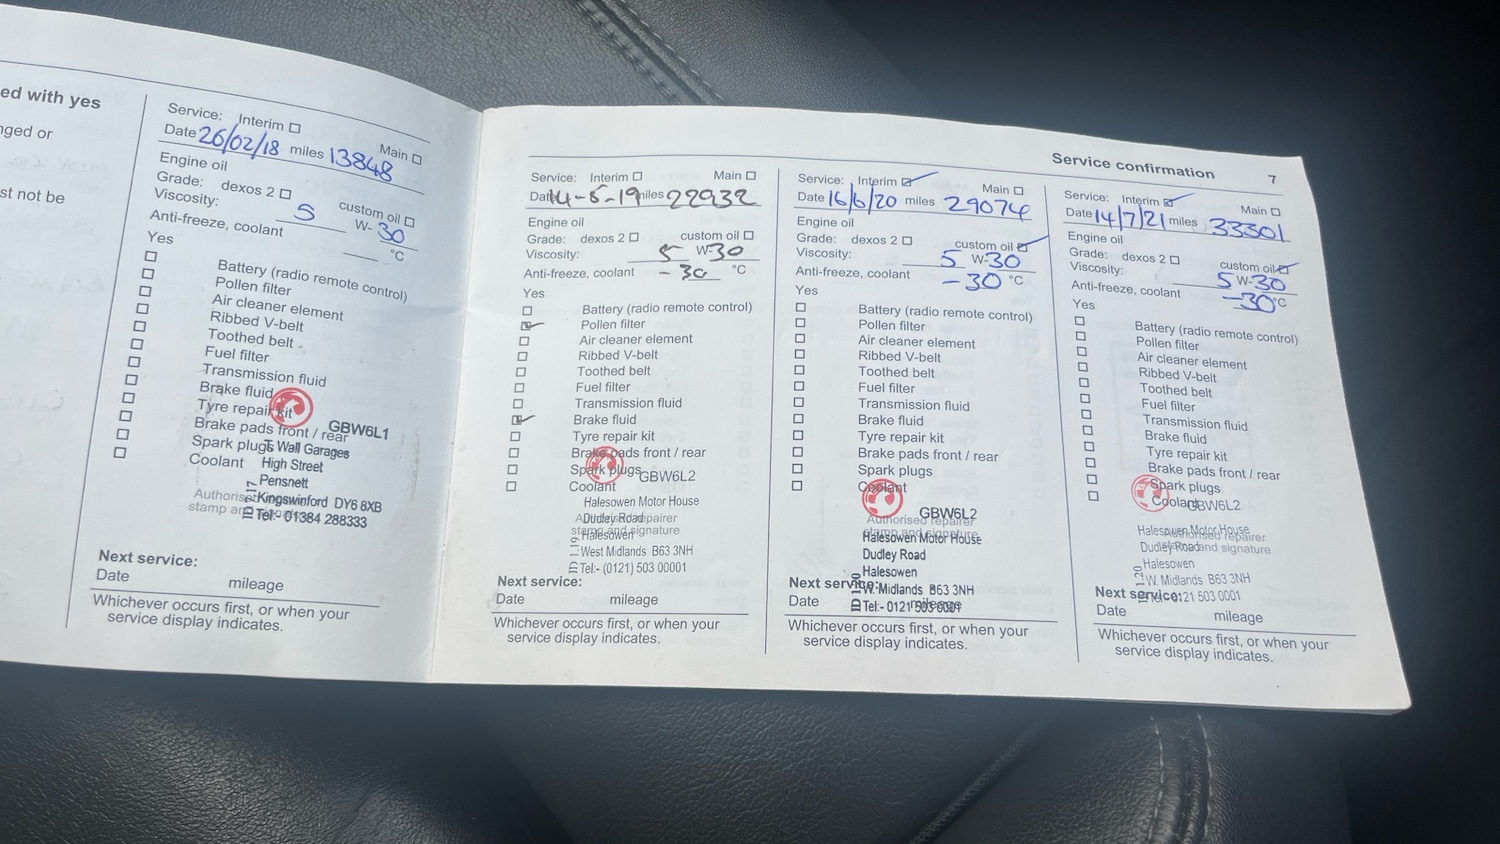 ed with yes
nged or
st not be
Service: Interim ☐
Main ☐
Date 26/02/18 miles 13848
Engine oil
Grade: dexos 2 ☐
custom oil ☐
Viscosity: 5 W- 30
Anti-freeze, coolant °C
Yes
☐ Battery (radio remote control)
☐ Pollen filter
☐ Air cleaner element
☐ Ribbed V-belt
☐ Toothed belt
☐ Fuel filter
☐ Transmission fluid
☐ Brake fluid
☐ Tyre repair kit
☐ Brake pads front / rear
☐ Spark plugs
☐ Coolant
GBW6L1
T. Wall Garages
High Street
Pensnett
Kingswinford DY6 8XB
Tel:- 01384 288333
Authorised
stamp and
Next service:
Date mileage
Whichever occurs first, or when your
service display indicates.
Service confirmation 7
Service: Interim ☐ Main ☐
Date 14-5-19 miles 22932
Engine oil
Grade: dexos 2 ☐ custom oil ☐
Viscosity: 5 W-30
Anti-freeze, coolant -30 °C
Yes
☐ Battery (radio remote control)
☑ Pollen filter
☐ Air cleaner element
☐ Ribbed V-belt
☐ Toothed belt
☐ Fuel filter
☐ Transmission fluid
☑ Brake fluid
☐ Tyre repair kit
☐ Brake pads front / rear
☐ Spark plugs
☐ Coolant
GBW6L2
Halesowen Motor House
Dudley Road
Halesowen
West Midlands B63 3NH
Tel:- (0121) 503 00001
Authorised repairer
stamp and signature
Next service:
Date mileage
Whichever occurs first, or when your
service display indicates.
Service: Interim ☑ Main ☐
Date 16/6/20 miles 29074
Engine oil
Grade: dexos 2 ☐ custom oil ☑
Viscosity: 5 W-30
Anti-freeze, coolant -30 °C
Yes
☐ Battery (radio remote control)
☐ Pollen filter
☐ Air cleaner element
☐ Ribbed V-belt
☐ Toothed belt
☐ Fuel filter
☐ Transmission fluid
☐ Brake fluid
☐ Tyre repair kit
☐ Brake pads front / rear
☐ Spark plugs
☐ Coolant
GBW6L2
Authorised repairer
stamp and signature
Halesowen Motor House
Dudley Road
Halesowen
W. Midlands B63 3NH
Tel:- 0121 503 0001
Next service:
Date mileage
Whichever occurs first, or when your
service display indicates.
Service: Interim ☑ Main ☐
Date 14/7/21 miles 33301
Engine oil
Grade: dexos 2 ☐ custom oil ☑
Viscosity: 5 W-30
Anti-freeze, coolant -30 °C
Yes
☐ Battery (radio remote control)
☐ Pollen filter
☐ Air cleaner element
☐ Ribbed V-belt
☐ Toothed belt
☐ Fuel filter
☐ Transmission fluid
☐ Brake fluid
☐ Tyre repair kit
☐ Brake pads front / rear
☐ Spark plugs
☐ Coolant
GBW6L2
Halesowen Motor House
Authorised repairer
Dudley Road
stamp and signature
Halesowen
W. Midlands B63 3NH
Tel:- 0121 503 0001
Next service:
Date mileage
Whichever occurs first, or when your
service display indicates.